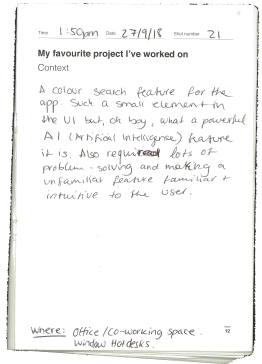 Time 1:50pm Date 27/9/18 Shot number 21
My favourite project I've worked on
Context
A colour search feature for the
app. Such a small element in
the UI but, oh boy, what a powerful
AI (Artificial Intelligence) feature
it is. Also required lots of
problem-solving and making a
unfamiliar feature familiar +
intuitive to the user.
12
Where: Office/Co-working space.
Window Hotdesks.